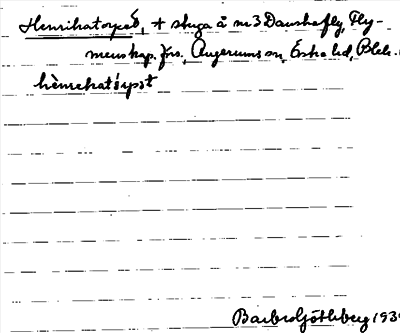 Henrikatorpet, + stuga å nr 3 Danskafly, Fly-
menskap. frs. Augerums sn, Östra hd, Blek.
hènrekatårpət
Barbro Göthberg 193